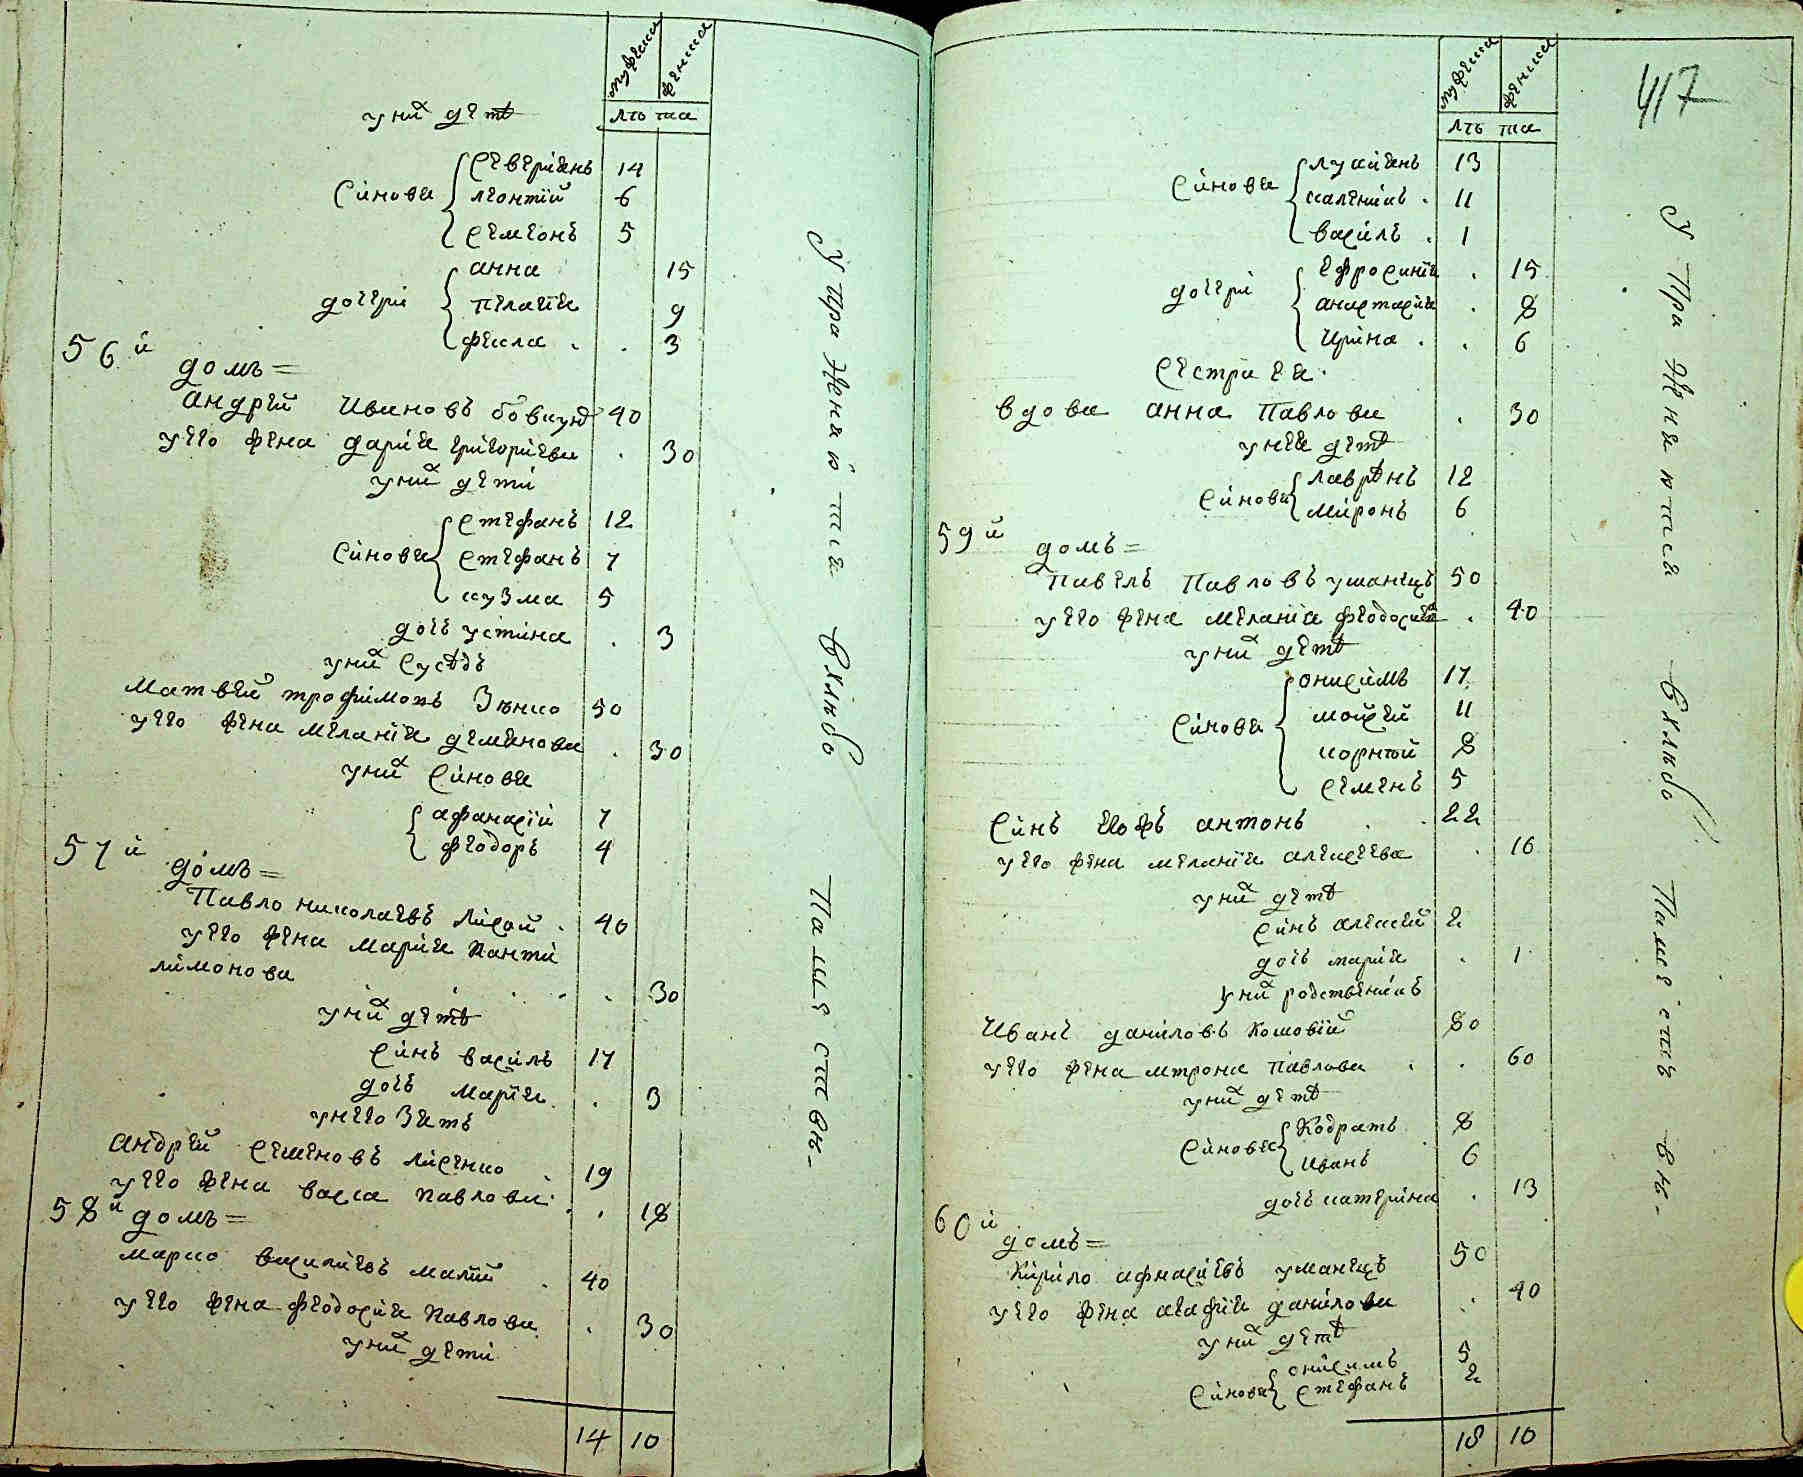 мужеска
женска
лѣ та
у них детѣ
синови
севериянъ 14
леонтій 6
семионъ 5
дочери
анна 15
пелагия 9
фекла 3
56 й
домъ=
андрей ивановъ 40
у его жена дария григориева 30
у них дети
синови
стефанъ 12
стефанъ 7
кузма 5
дочь устина 3
у них сусѣдъ
матвей трофимовъ Зѣнко 50
у его жена мелания деминова 30
у них синови
афанасій 7
феодоръ 4
57 й
домъ=
Павло николаевъ лисой 40
у его жена мария панти
лимонова 30
у них детѣ
синъ василь 17
дочь мария 3
у него Зять
андрей семеновъ лисенко 19
у его жена васса павлова 18
58 й домъ=
марко василиевъ малий 40
у его жена феодосия павлова 30
у них дети
14 10
417
мужеска
женска
лѣ та
синови
лукиянъ 13
каленикъ 11
василь 1
дочери
ефросиния 15
анастасия 8
ирина 6
сестра ея
вдова анна павлова 30
у нея детѣ
синови
лаврѣнъ 12
миронъ 6
59 й
домъ=
павелъ павловъ уманецъ 50
у его жена мелания феодосиева 40
у них детѣ
синови
онисимъ 17
мойсей 11
корней 8
семенъ 5
синъ антонъ 22
у его жена мелания алексеева 16
у них детѣ
синъ алексей 2
дочь мария 1
у них родственикъ
иванъ даниловъ кошовій 80
у его жена мтрона павлова 60
у них детѣ
синови
кодратъ 8
иванъ 6
дочь катерина 13
60 й
домъ=
кирило афнасиевъ уманецъ 50
у его жена агафия данилова 40
у них детѣ
синови
онисимъ 5
стефанъ 2
18 10